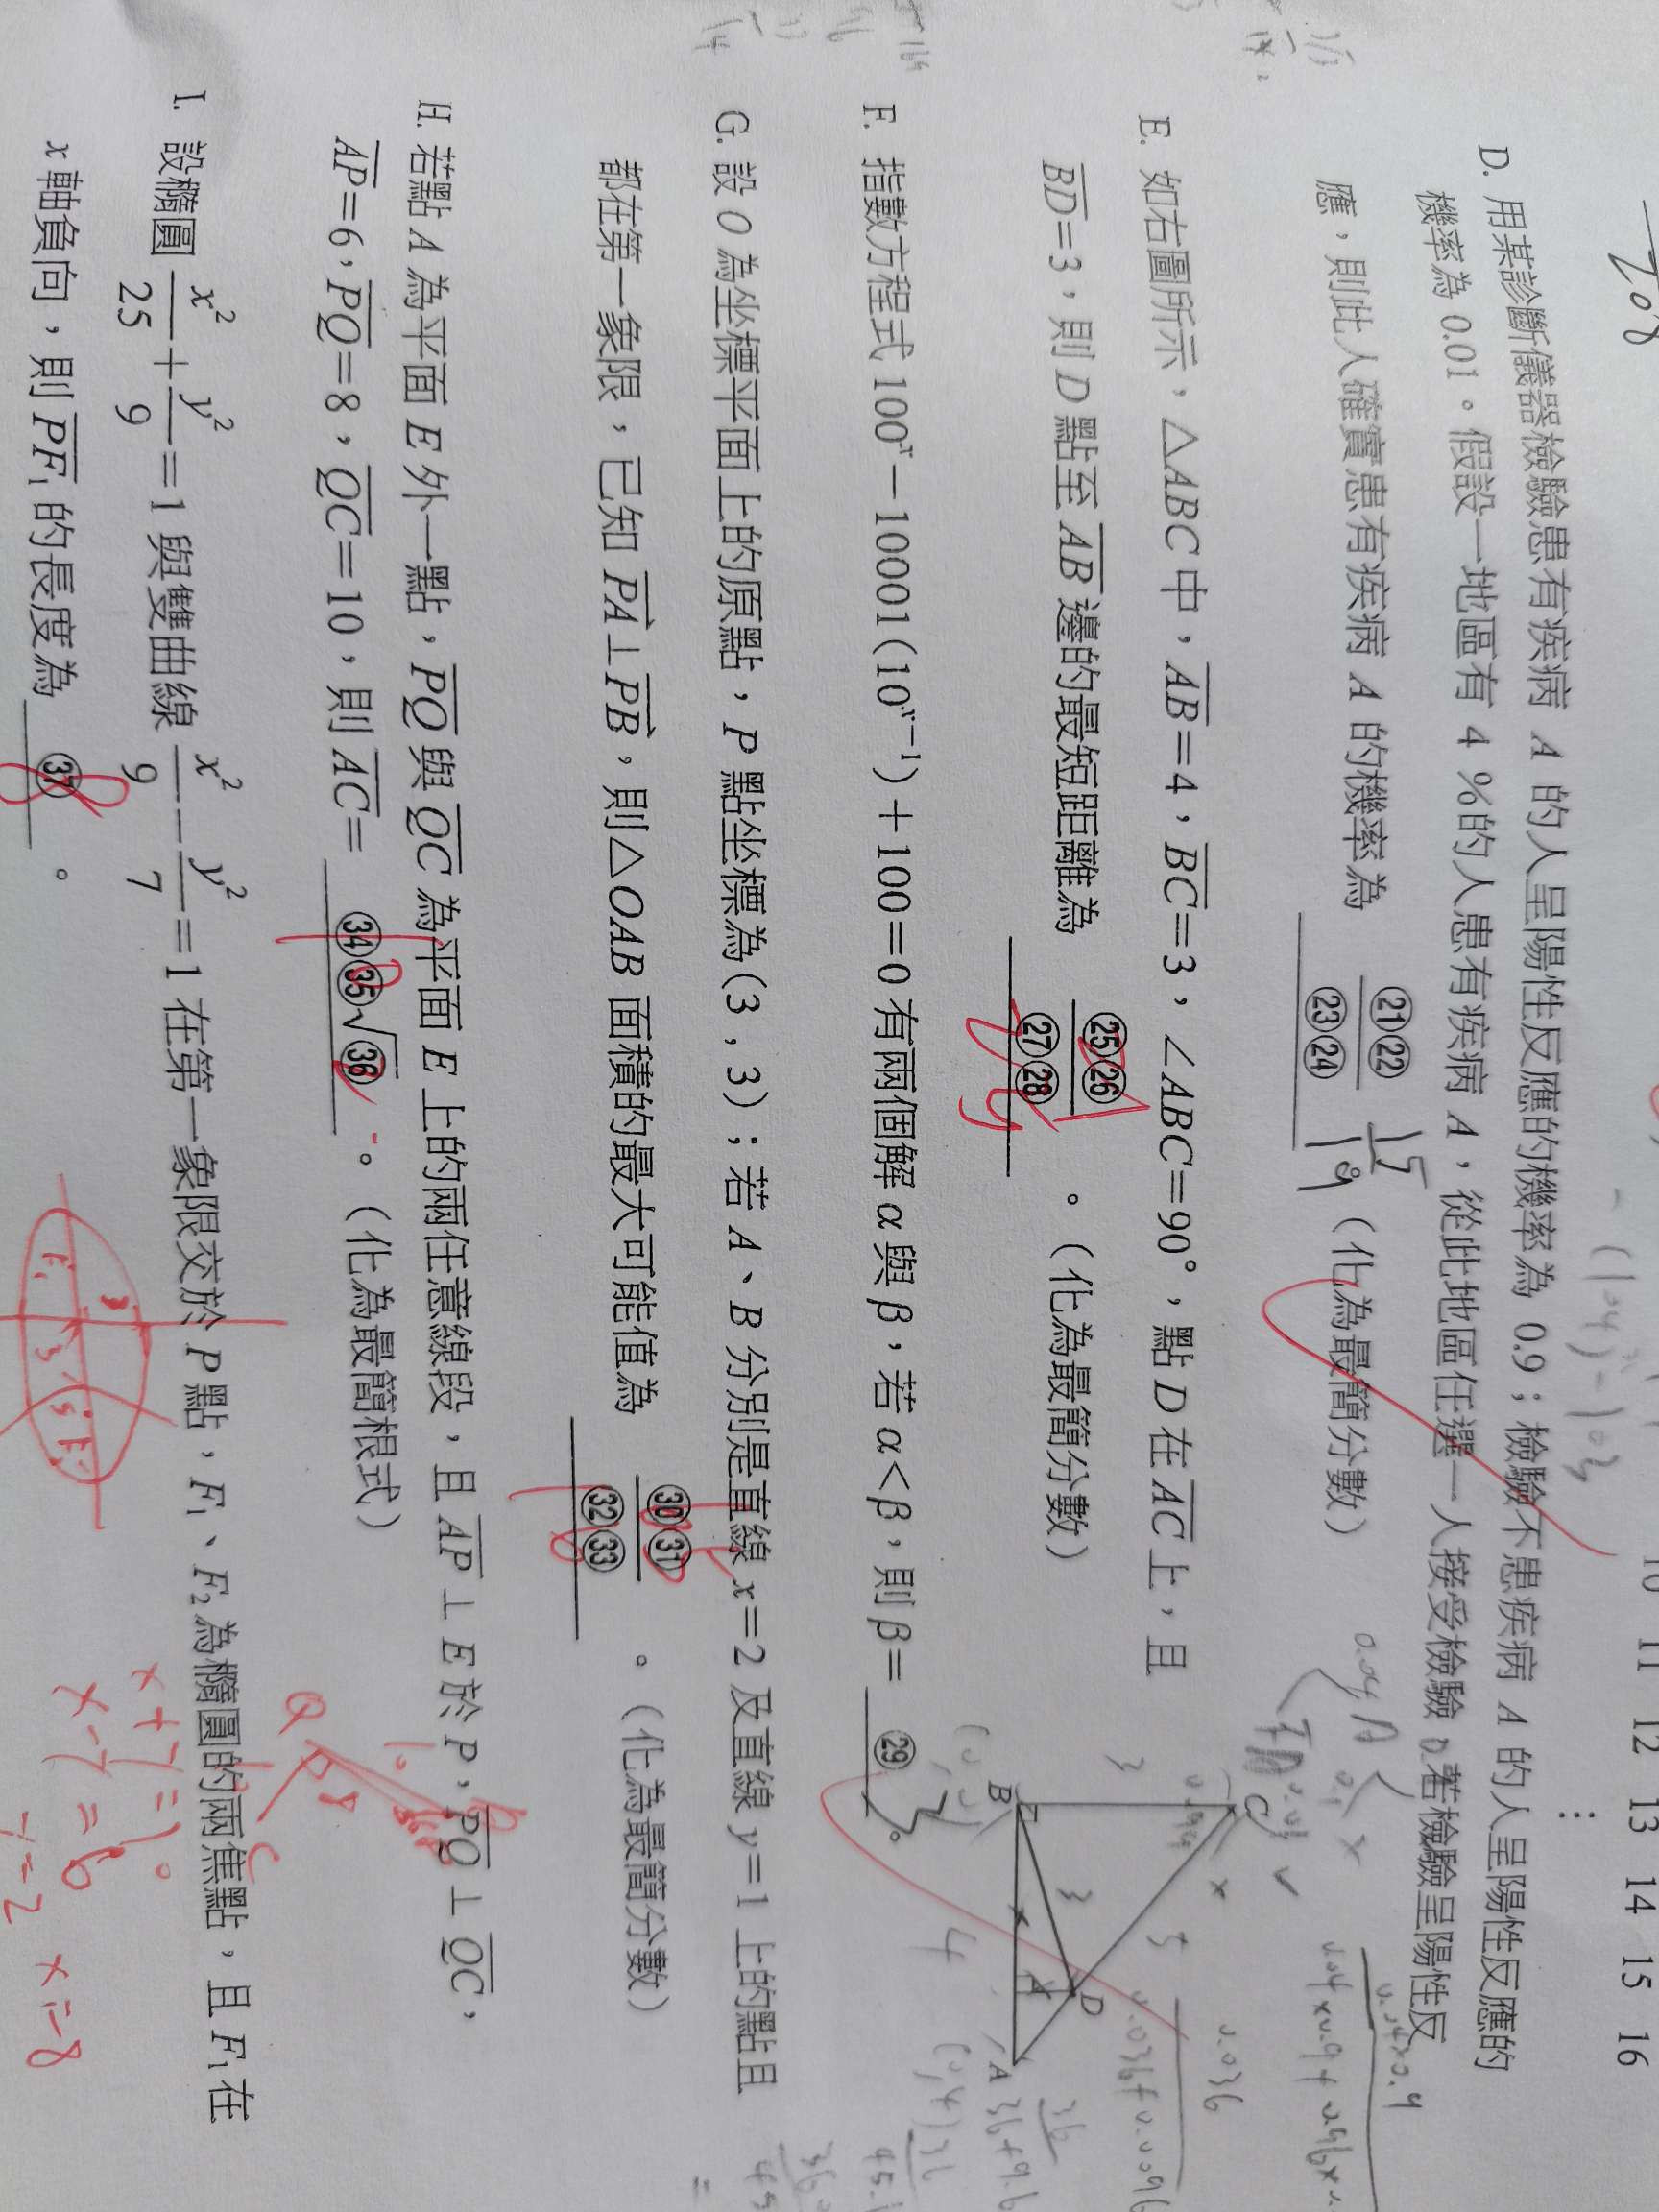 10 11 12 13 14 15 16
D. 用某診斷儀器檢驗患有疾病 A 的人呈陽性反應的機率為 0.9；檢驗不患疾病 A 的人呈陽性反應的
機率為 0.01。假設一地區有 4 %的人患有疾病 A，從此地區任選一人接受檢驗。若檢驗呈陽性反
應，則此人確實患有疾病 A 的機率為 ㉑㉒/㉓㉔ 15/19 。（化為最簡分數）
E. 如右圖所示，△ABC 中，AB=4，BC=3，∠ABC=90°，點 D 在 AC 上，且
BD=3，則 D 點至 AB 邊的最短距離為 ㉕㉖/㉗㉘ 。（化為最簡分數）
C
B
D
A
3
3
5
4
F. 指數方程式 100^x－10001(10^(x−1))＋100=0 有兩個解 α 與 β，若 α<β，則 β= ㉙ 3 。
G. 設 O 為坐標平面上的原點，P 點坐標為(3 , 3)；若 A、B 分別是直線 x=2 及直線 y=1 上的點且
都在第一象限，已知 PA⊥PB，則△OAB 面積的最大可能值為 ㉚㉛/㉜㉝ 。（化為最簡分數）
H. 若點 A 為平面 E 外一點，PQ 與 QC 為平面 E 上的兩任意線段，且 AP⊥E 於 P，PQ⊥QC，
AP=6，PQ=8，QC=10，則 AC= ㉞㉟√㊱ 。（化為最簡根式）
I. 設橢圓 x²/25＋y²/9=1 與雙曲線 x²/9－y²/7=1 在第一象限交於 P 點，F₁、F₂ 為橢圓的兩焦點，且 F₁ 在
x 軸負向，則 PF₁ 的長度為 ㊲ 8 。
x+y=10
x-y=6
y=2 x=8